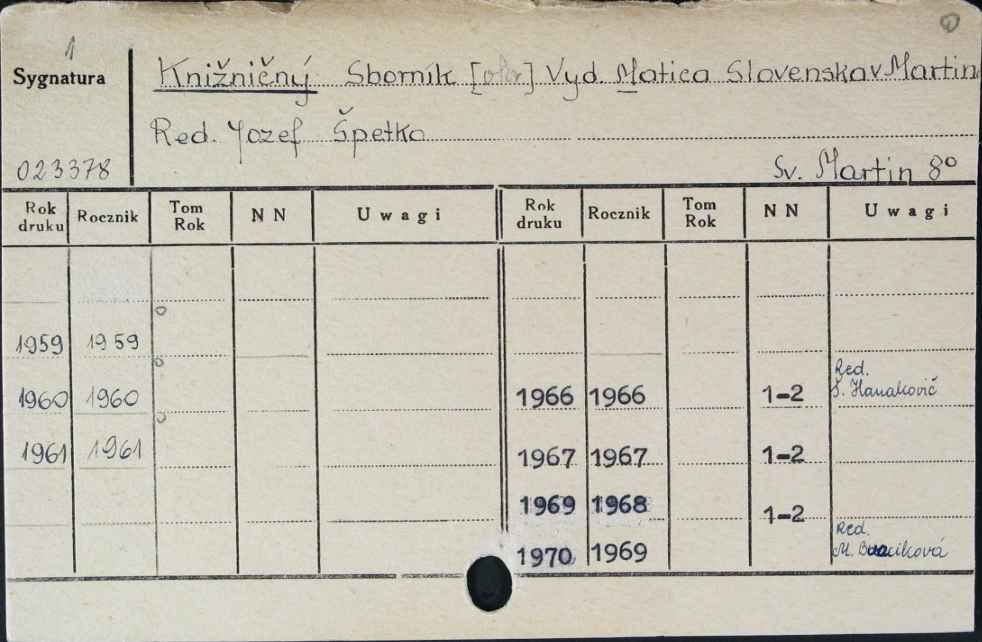 1
Sygnatura
Knižničný Sborník [ ] Vyd. Matica Slovenska v Martin
Red. Jozef Špetko
023378
Sv. Martin 8º
Rok druku Rocznik Tom Rok NN Uwagi Rok druku Rocznik Tom Rok NN Uwagi
1959 1959
1960 1960 1966 1966 1-2 Red. Š. Hanakovič
1961 1961 1967 1967 1-2
1969 1968 1-2
1970 1969 Red. M.